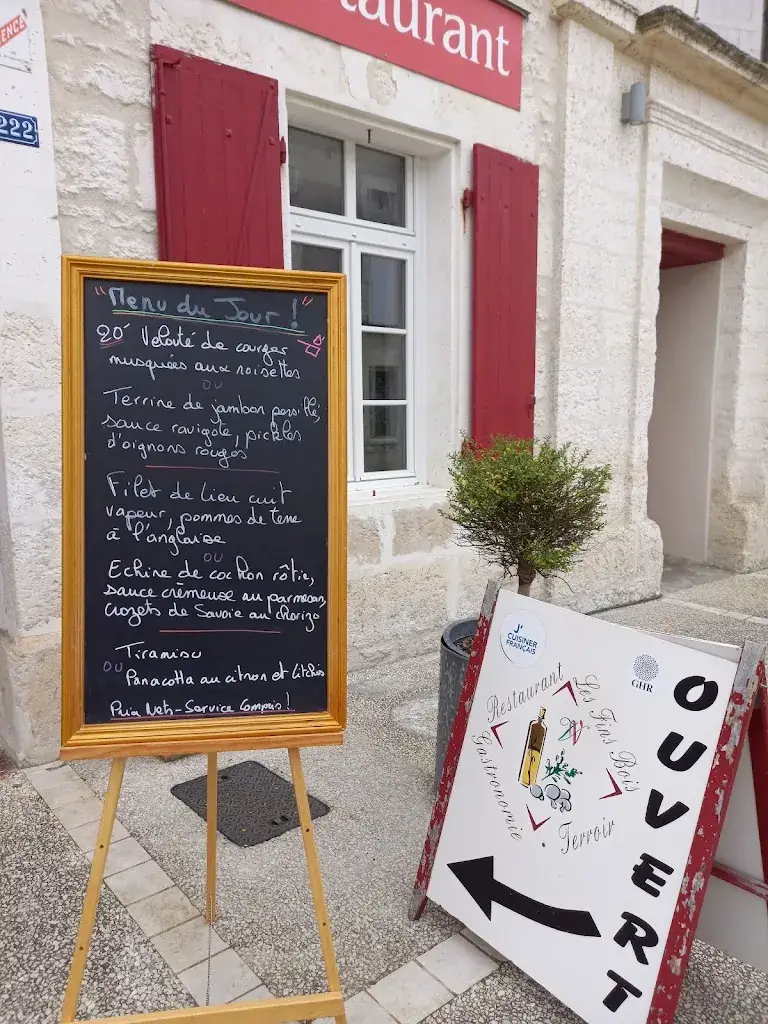 ENCE
222
taurant
"Menu du Jour !"
20 Velouté de courges
musquées aux noisettes
ou
Terrine de jambon persillé,
sauce ravigote, pickles
d'oignons rouges
Filet de lieu cuit
vapeur, pommes de terre
à l'anglaise
ou
Echine de cochon rôtie,
sauce crèmeuse au parmesan,
crozets de Savoie au chorizo
Tiramisu
ou
Panacotta au citron et litchis
Prix Nets-Service Compris !
J'
CUISINER
FRANÇAIS
GHR
Restaurant
Les Fins Bois
Gastronomie
Terroir
OUVERT